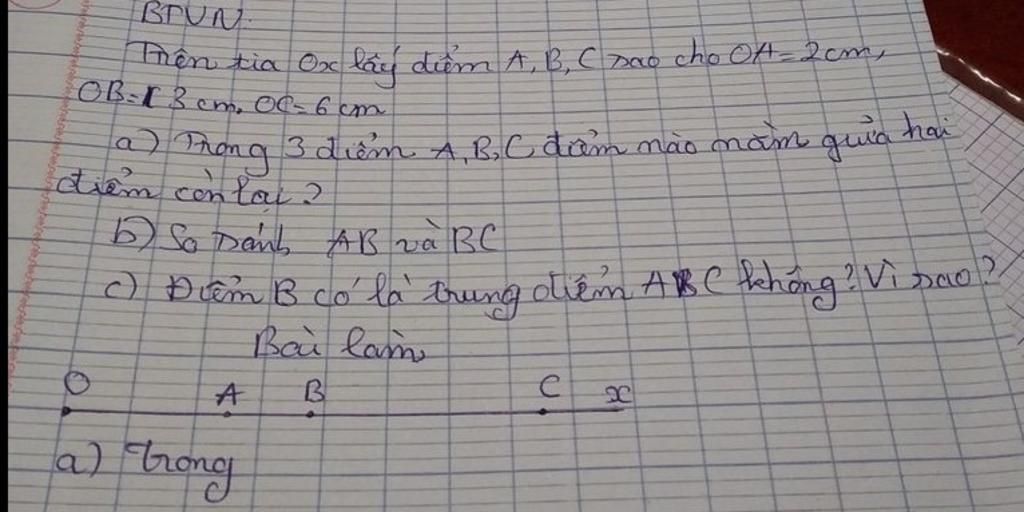 BTVN
Trên tia Ox lấy điểm A, B, C sao cho OA = 2cm,
OB = 3 cm, OC = 6 cm
a) Trong 3 điểm A, B, C điểm nào nằm giữa hai
điểm còn lại?
b) So sánh AB và BC
c) Điểm B có là trung điểm AC không? Vì sao?
Bài làm
O A B C x
a) Trong